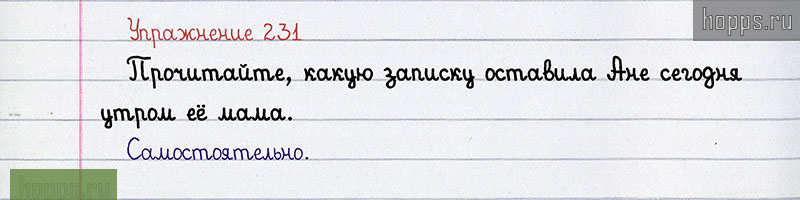 hopps.ru
Упражнение 231
Прочитайте, какую записку оставила Ане сегодня
утром её мама.
Самостоятельно.
hopps.ru